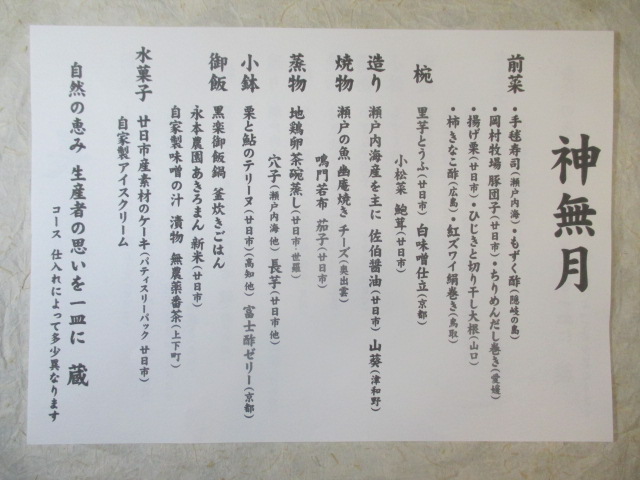 神無月
前菜 ・手毬寿司(瀬戸内海)・もずく酢(隠岐の島)
・岡村牧場 豚団子(廿日市)・ちりめんだし巻き(愛媛)
・揚げ栗(廿日市)・ひじきと切り干し大根(山口)
・柿きなこ酢(広島)・紅ズワイ絹巻き(鳥取)
椀 里芋とうふ(廿日市) 白味噌仕立(京都)
小松菜 鮑茸(廿日市)
造り 瀬戸内海産を主に 佐伯醤油(廿日市) 山葵(津和野)
焼物 瀬戸の魚 幽庵焼き チーズ(奥出雲)
鳴門若布 茄子(廿日市)
蒸物 地鶏卵茶碗蒸し(廿日市 世羅)
穴子(瀬戸内海他) 長芋(廿日市他)
小鉢 栗と鮎のテリーヌ(廿日市)(高知他) 富士酢ゼリー(京都)
御飯 黒楽御飯鍋 釜炊きごはん
永本農園 あきろまん 新米(廿日市)
自家製味噌の汁 漬物 無農薬番茶(上下町)
水菓子 廿日市産素材のケーキ(パティスリーパック 廿日市)
自家製アイスクリーム
自然の恵み 生産者の思いを一皿に 蔵
コース 仕入れによって多少異なります